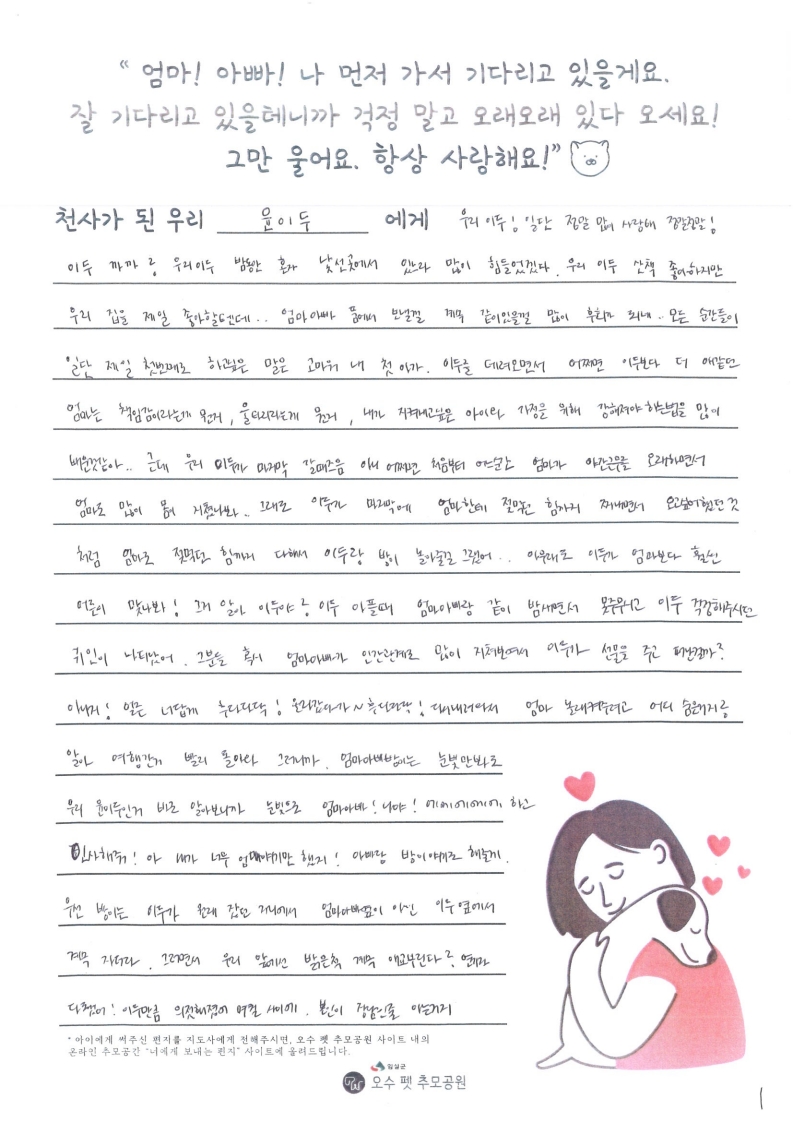 “ 엄마! 아빠! 나 먼저 가서 기다리고 있을게요.
잘 기다리고 있을테니까 걱정 말고 오래오래 있다 오세요!
그만 울어요. 항상 사랑해요!”
천사가 된 우리 윤이두 에게 우리 이두! 일단 정말 많이 사랑해 정말정말!
이두 까까 우리이두 밤동안 혼자 낯선곳에서 있느라 많이 힘들었겠다. 우리 이두 산책 좋아하지만
우리 집을 제일 좋아할텐데.. 엄마아빠 품에서 보낼걸 계속 같이있을걸 많이 후회가 되네.. 모든 순간들이
일단 제일 첫번째로 하고싶은 말은 고마워 내 첫 아가. 이두를 데려오면서 어쩌면 이두보다 더 애같던
엄마는 책임감이라는게 뭔지, 울타리라는게 뭔지, 내가 지켜내고싶은 아이와 가정을 위해 강해져야 하는법을 많이
배운것같아.. 근데 우리 이두가 마지막 갈때즈음 아니 어쩌면 처음부터 엄마가 야간근무를 오래하면서
엄마도 많이 몸이 지쳤나봐.. 그래도 이두가 마지막에 엄마한테 젖먹던 힘까지 짜내면서 오고싶어했던 것
처럼 엄마도 젖먹던 힘까지 다해서 이두랑 많이 놀아줄걸 그랬어.. 아무래도 이두가 엄마보다 훨씬
어른이 맞나봐! 그거 알아 이두야? 이두 아플때 엄마아빠랑 같이 밤새면서 못주무시고 이두 걱정해주시던
귀인이 나타났어. 그분들 혹시 엄마아빠가 인간관계로 많이 지쳐보여서 이두가 선물을 주고 떠난걸까?
아무지! 일은 너답게 후다다닥! 올라갔다가~ 후다다닥! 다시내려와서 엄마 놀래켜주려고 어디 숨은거지?
알아 여행간거 빨리 돌아와 그러니까. 엄마아빠방이는 눈빛만봐도
우리 윤이두인거 바로 알아보니까 눈빛으로 엄마아빠! 나야! 에헤에헤에헤 하고
인사해줘! 아 내가 너무 엄마얘기만 했지! 아빠랑 방이얘기도 해줄게.
우선 방이는 이두가 원래 잤던 자리에서 엄마아빠옆이 아닌 이두옆에서
계속 자더라. 그러면서 우리 앞에선 밝은척 계속 애교부린다?
다컸어! 이두만큼 의젓해졌어 며칠 사이에. 본인이 장남인줄 아는거지
* 아이에게 써주신 편지를 지도사에게 전해주시면, 오수 펫 추모공원 사이트 내의
온라인 추모공간 "너에게 보내는 편지" 사이트에 올려드립니다.
임실군
오수 펫 추모공원
1